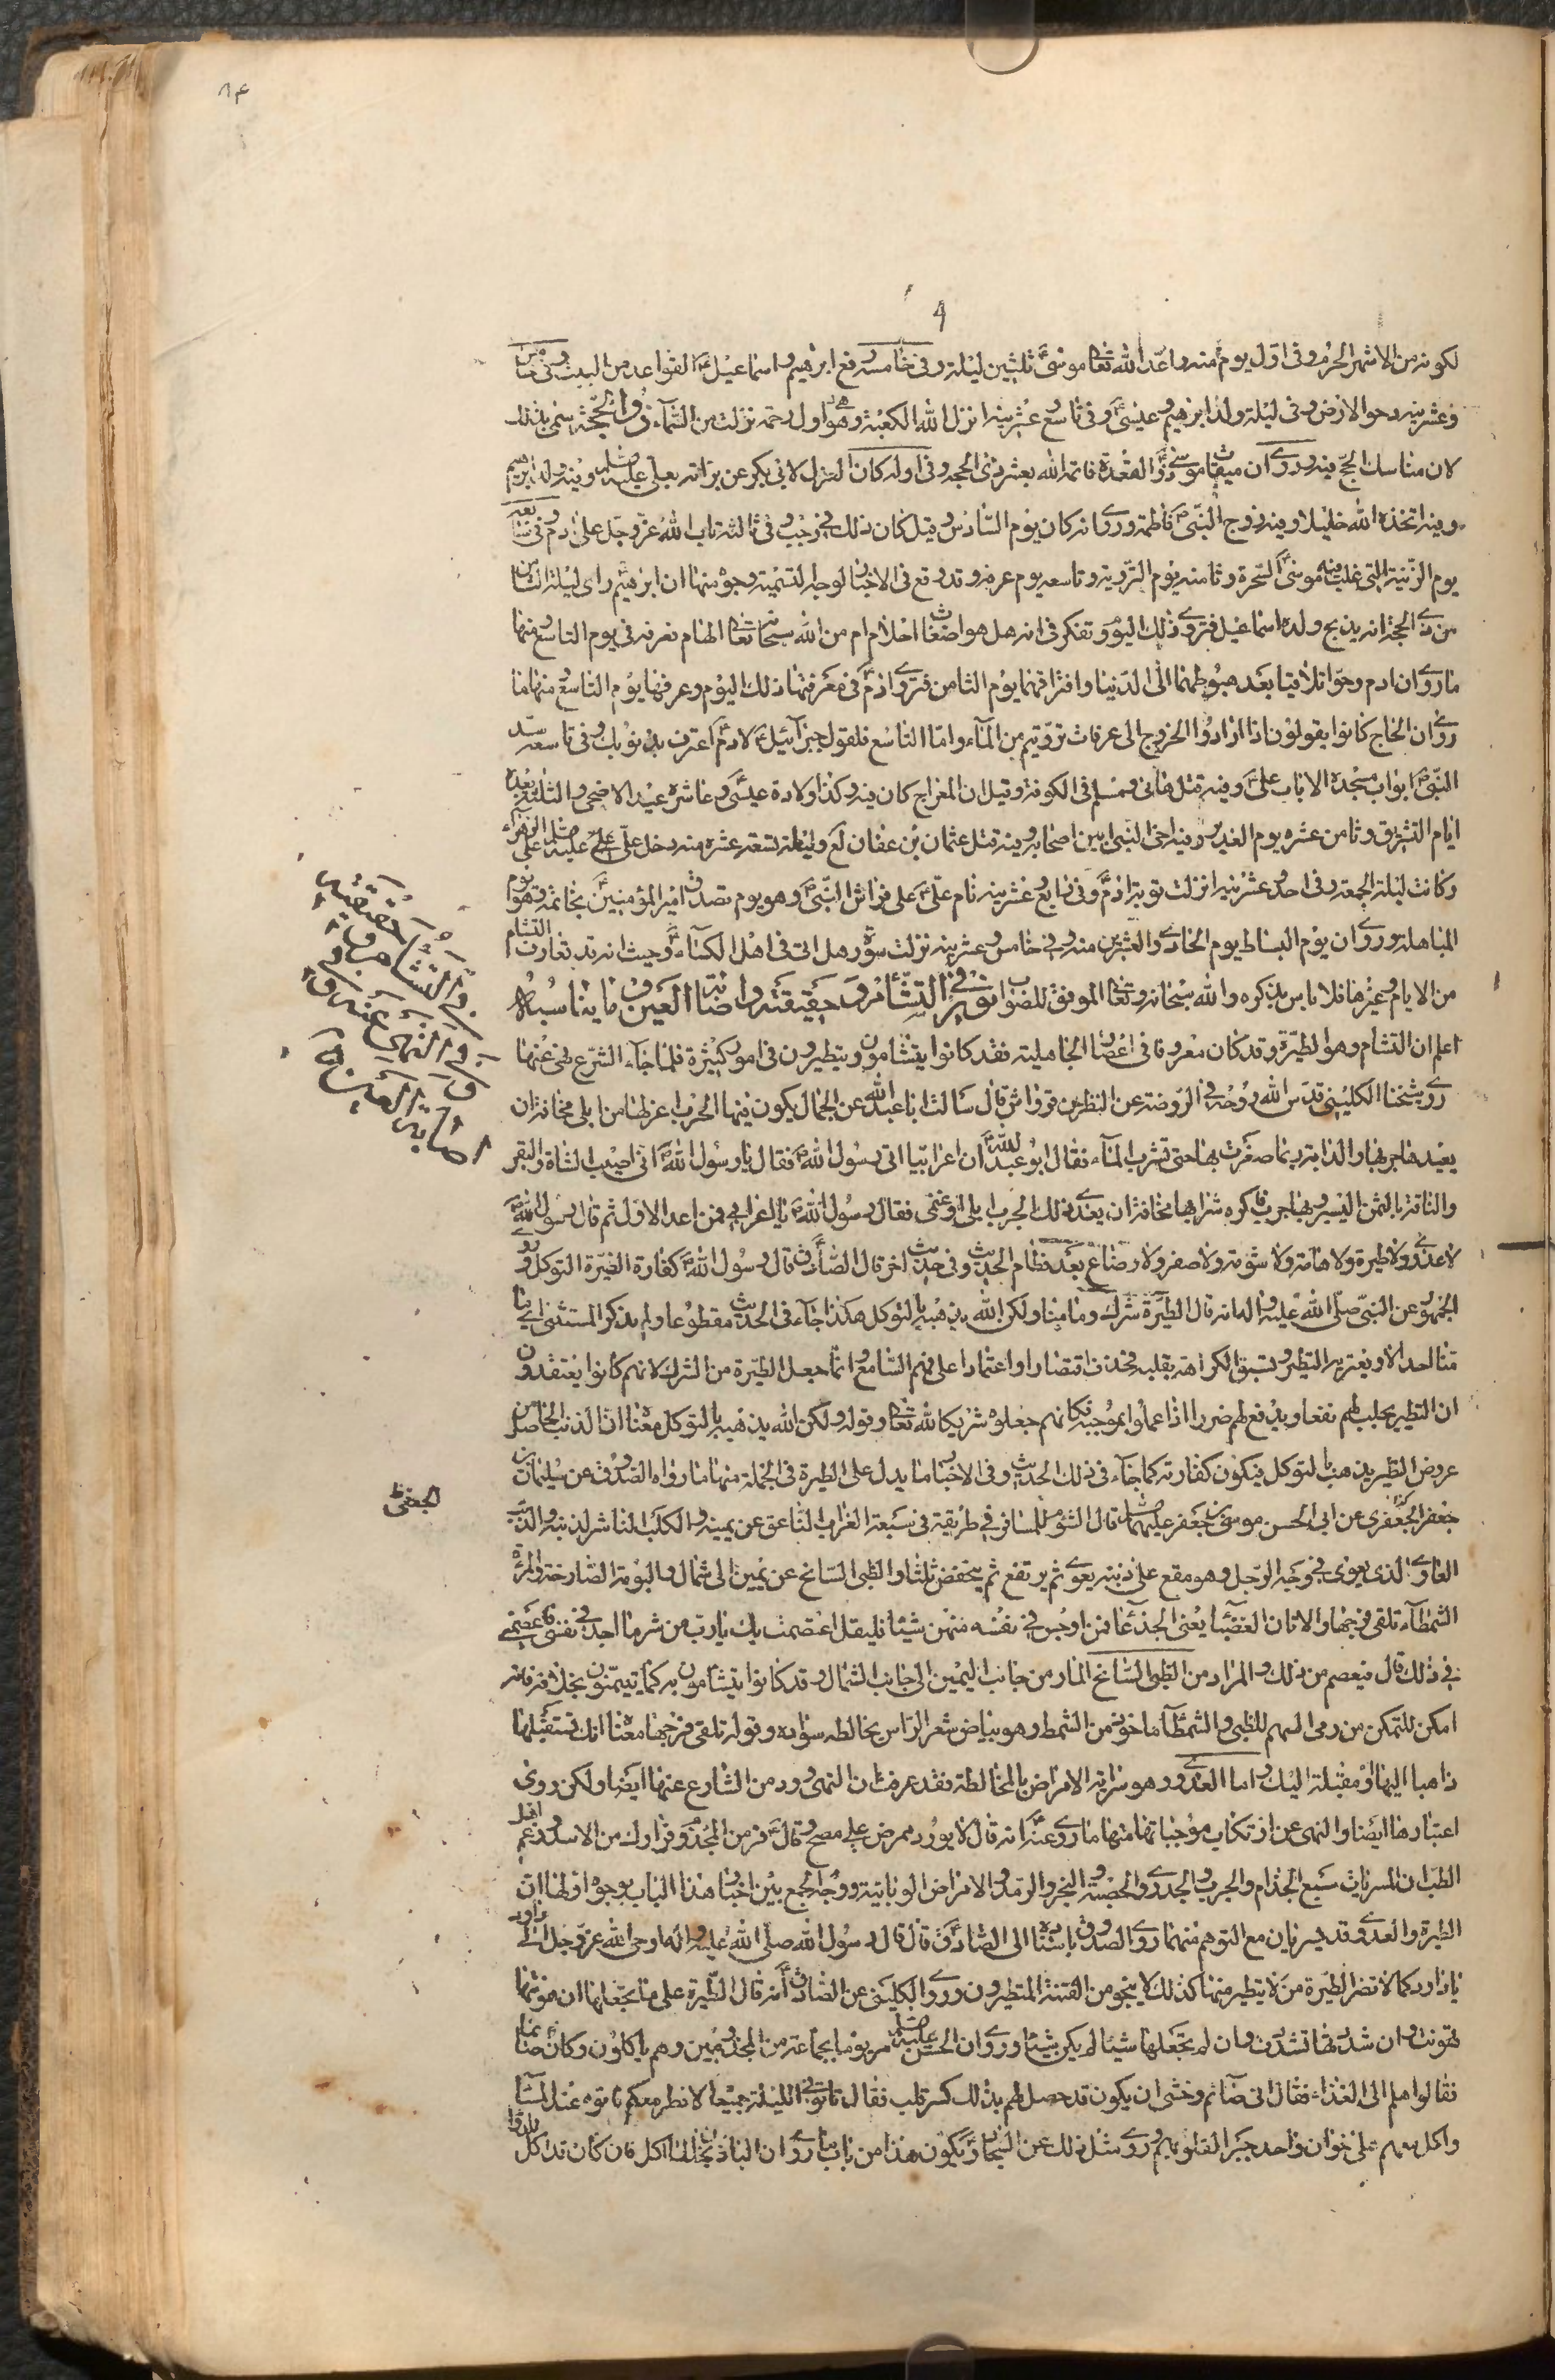 لكونه من الاشهر الحرم وفى اوّل يوم منه واعد الله تعا موسىٰ ثلثين ليلة وفى خامسه رفع ابرهيم واسماعيل القواعد من البيت وفى خامس
وعشرينه دحو الارض وفى ليلته ولد ابرهيم وعيسىٰ وفى تاسع عشرينه انزل الله الكعبة وهى اول رحمة نزلت من السّمآء ذو الحجّة سمّى بذلك
لان مناسك الحجّ فيه وروى ان ميقات موسى ذو القعدة فاتمه الله بعشر ذى الحجه وفى اوله كان العزل لابى بكر عن برائة بعلى عليه السلم وفيه ولد ابرهيم
وفيه اتخذه الله خليلا وفيه زوج النبّى فاطمة وروى انه كان يوم السّادس وقيل كان ذلك فى رجب وفى ثالثه تاب الله عزّ وجل على ادم وفى سابعه
يوم الزينة التى غلب فيه موسىٰ السّحرة وثامنه يوم التّروية وتاسعه يوم عرفه وقد وقع فى الاخبار لوجه التسمية وجوه منها ان ابرهيم راى ليلة الثامن
من ذى الحجة انه يذبح ولده اسماعيل فتروى ذلك اليوم وتفكر فى انه هل هو اضغاث احلام ام من الله سبحانه تعا الهام فعرفه فى يوم التاسع ومنها
ما روى ان ادم وحوّا تلاقيا بعد هبوطهما الى الدّنيا وافتراقهما يوم الثامن فتروى ادم فى معرفتها ذلك اليوم وعرفها يوم التاسع ومنها ما
روى ان الحاج كانوا يقولون اذا ارادوا الخروج الى عرفات تروّيتم من المآء واما التاسع فلقول جبرآئيل لادم اعترف بذنوبك وفى تاسعه سدّ
النبىّ ابواب مسجده الا باب علىّ وفيه قتل هانى ومسلم فى الكوفة وقيل ان المعراج كان فيه وكذا ولادة عيسىٰ وعاشره عيد الاضحى والثلثة بعده
ايام التشريق وثامن عشره يوم الغدير وفيه اخى النبى بين اصحابه وفيه قتل عثمان بن عفان لع وليلة تسعة عشره منه دخل علىّ عليه السلم على الزهراء
وكانت ليلة الجمعة وفى احد وعشرينه انزلت توبة ادم وفى رابع وعشرينه نام علىّ على فراش النبىّ وهو يوم تصدق امير المؤمنين بخاتمه وهو يوم
المباهلة وروى ان يوم البساط يوم الحادى والعشرين منه وفى خامس وعشرينه نزلت سورة هل اتى فى اهل الكسآء وحيث انه قد تعارف التشام
من الايام وغيرها فلا باس بذكره والله سبحانه وتعا الموفق للصواب نور فى التشّأم وحقيقته واصابة العين وما يناسبه
اعلم ان التشام وهو الطيرة وقد كان معروفا فى اعصار الجاهلية فقد كانوا يتشامون ويتطيرون فى امور كثيرة فلما جآء الشرع نهى عنها
روى شيخنا الكلينى قدس الله روحه فى الروضة عن النظر بن قرواش قال سالت ابا عبد الله عن الجمال يكون فيها الجرب اعزلها من ابلى مخافة ان
يعيدها جربها والدابة ربما صفرت بها حتى تشرب المآء فقال ابو عبد الله ان اعرابيا اتى رسول الله فقال يا رسول الله انى اصيب الشاة والبقر
والناقة بالثمن اليسير وبها جرب فاكره شرائها مخافة ان يعدى ذلك الجرب ابلى او غنمى فقال رسول الله يا اعرابى فمن اعد الاول ثم قال رسول الله
لا عدوى ولا طيرة ولا هامة ولا شوم ولا صفر ولا رضاع بعد فطام الحديث وفى حديث اخر قال الصّادق قال رسول الله كفارة الطيّرة التوكل وروى
الجمهور عن النبى صلّى الله عليه واله انه قال الطيّرة شرك وما منا ولكن الله يذهبه بالتوكل هكذا جآء فى الحديث مقطوعا ولم يذكر المستثنى اى ما
منا احد الا ويعتريه التطير وتسبق الكراهة بقلبه فحذف اقتصارا واعتمادا على فهم السّامع وانّما جعل الطيّرة من الشرك لانهم كانوا يعتقدون
ان التطير يجلب لهم نفعا ويدفع لهم ضررا اذا عملوا بموجبه فكانهم جعلوه شريكا لله تعا وقوله ولكن الله يذهبه بالتوكل معناه ان الذنب الحاصل من
عروض التطير يذهب بالتوكل فيكون كفارته كما جآء فى ذلك الحديث وفى الاخبار ما يدل على الطيرة فى الجملة منها ما رواه الصدوق عن سليمان بن
جعفر الجعفرى عن ابى الحسن موسى بن جعفر عليهما السلم قال الشوم للمسافر فى طريقه فى سبعة الغراب الناعق عن يمينه والكلب الناشر لذنبه والذئب
العاوى الذى يعوى فى وجه الرّجل وهو مقع على ذنبه يعوى ثم يرتفع ثم ينخفض ثلثا والظبى السانح عن يمين الى شمال والبومة الصّارخة والمرأة
الشمطآء تلقى فرجها والاتان العضبآء يعنى الجدعآء فمن اوجس فى نفسه منهن شيئا فليقل اعتصمت بك يا رب من شر ما اجد فى نفسى فاعصمنى
فى ذلك قال فيعصم من ذلك والمراد من الظبى السّانح المار من جانب اليمين الى جانب الشمال وقد كانوا يتشأمون به كما يتيمّنون بخلافه فانه
امكن للتمكن من رمى السهم للظبى والشمطآء ماخوذ من الشمط وهو بياض شعر الرّاس يخالطه سواده وقوله تلقى فرجها معناه انك تستقبلها
ذاهبا اليها او مقبلة اليك واما العدوى وهو سراية الامراض بالمخالطة فقد عرفت ان النهى ورد من الشارع عنها ايضا ولكن روى
اعتبارها ايضا والنهى عن ارتكاب موجباتها منها ما روى عنه انه قال لا يورد ممرض على مصح وقال فر من المجذوم فرارك من الاسد وزعم اهل
الطب ان المسريات سبع الجذام والجرب والجدرى والحصبة والبخر والرّمد والامراض الوبائية ووجه الجمع بين اخبار هذا الباب بوجوه اولها ان
الطيرة والعدوى قد يسريان مع التوهم منهما روى الصدوق باسناده الى الصّادق قال قال رسول الله صلّى الله عليه واله اوحى الله عز وجل الى داود
يا داود كما لا تضر الطيّرة من لا يتطير منها كذلك لا ينجو من الفتنة المتطيرون وروى الكلينى عن الصّادق انه قال الطيّرة على ما تجعلها ان هونتها
تهونت وان شددتها تشددت وان لم تجعلها شيئا لم يكن شيئا وروى ان الحسن عليه السلم مر يوما بجماعة من المجذومين وهم ياكلون وكان صائما
فقالوا هلم الى الغذاء فقال انى صآئم وخشى ان يكون قد حصل لهم بذلك كسر قلب فقال تاتونى الليلة جميعا لا نطر معكم فاتوه عند المسآء
واكل معهم على خوان واحد جبرا لقلوبهم وروى مثل ذلك عن السجاد ويكون هذا من باب ما روى ان الباذنجان لما اكل فان كان قد كل
فى التشام وحقيقته
والنهى عنه و
اصابة العين
الجعفرى